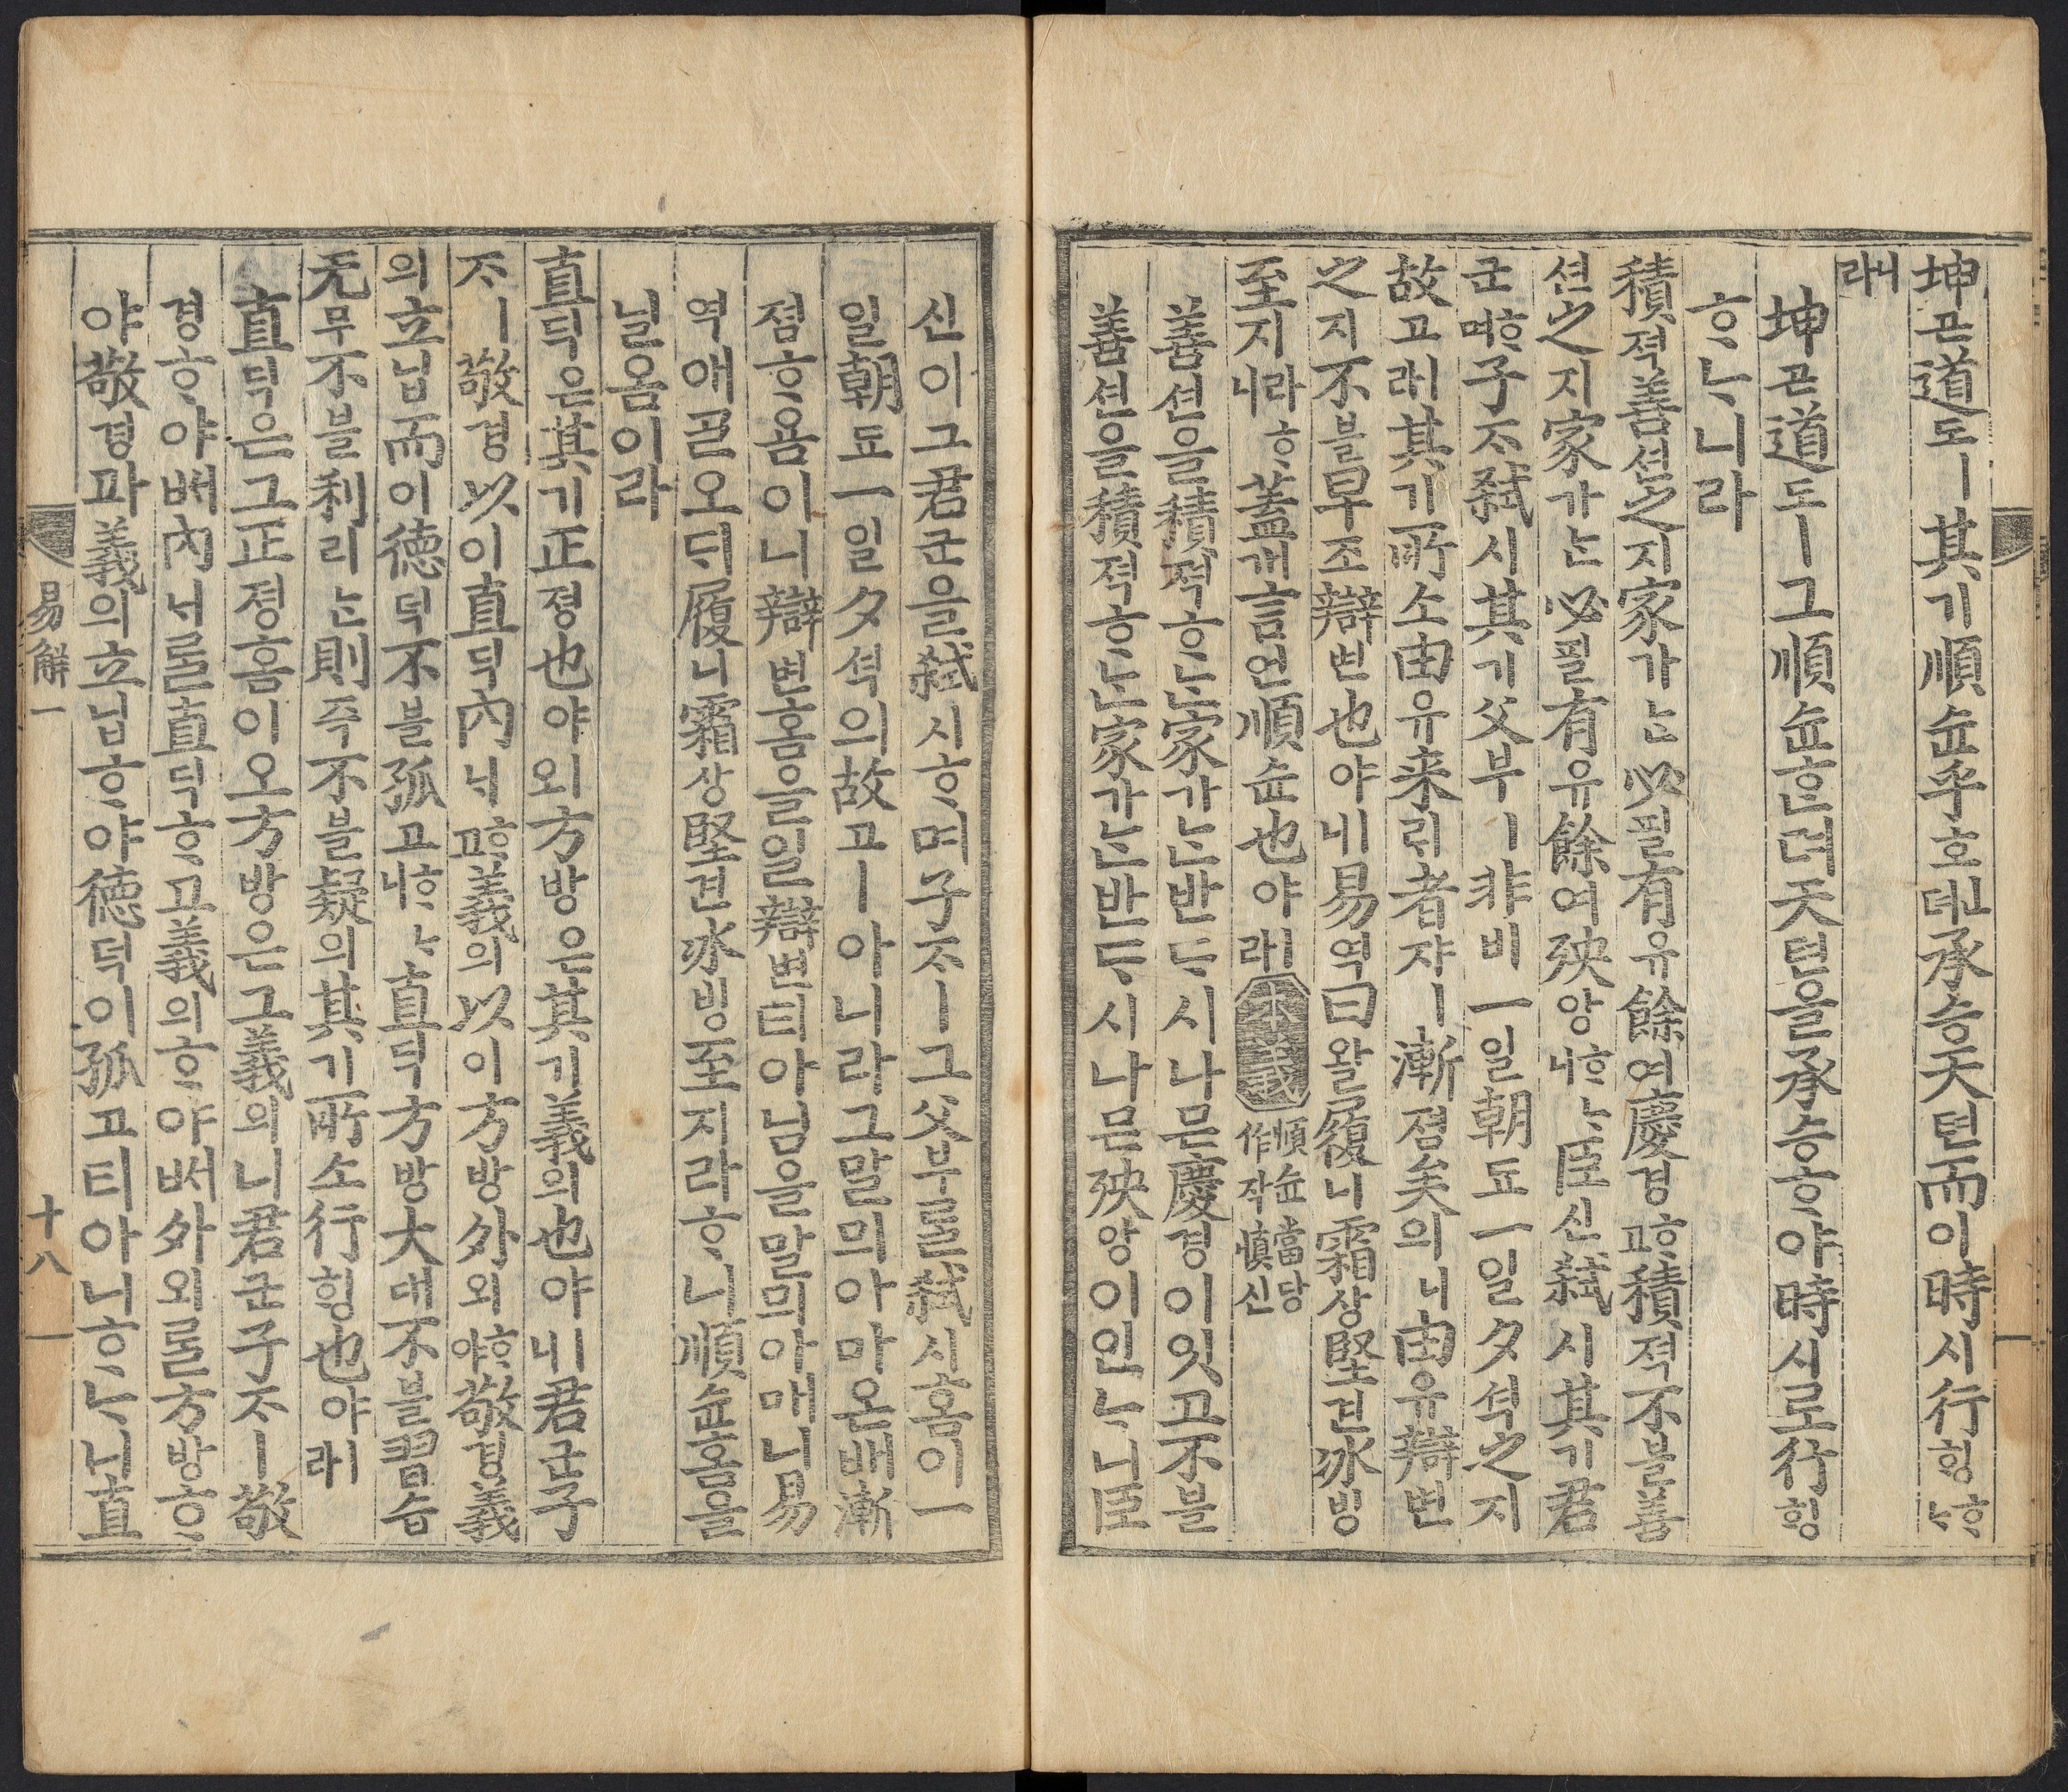 坤곤道도ㅣ其기順슌乎호ᅟᅵᆫ뎌承승天텬而이時시行ᄒᆡᆼᄒᆞᄂᆞ
니라
坤곤道도ㅣ그順슌ᄒᆞᆫ뎌天텬을承승ᄒᆞ야時시로行ᄒᆡᆼ
ᄒᆞᄂᆞ니라
積젹善션之지家가ᄂᆞᆫ必필有유餘여慶경ᄒᆞ고積젹不블善
션之지家가ᄂᆞᆫ必필有유餘여殃앙ᄒᆞᄂᆞ니臣신弑시其기君
군ᄒᆞ며子ᄌᆞ弑시其기父부ㅣ非비一일朝됴一일夕셕之지
故고ㅣ라其기所소由유来ᄅᆡ者쟈ㅣ漸졈矣의니由유辯변
之지不블早조辯변也야ㅣ니易역曰왈履니霜상堅견氷빙
至지라ᄒᆞ니蓋개言언順슌也야ㅣ라本義順슌當당作작愼신
善션을積젹ᄒᆞᄂᆞᆫ家가ᄂᆞᆫ반ᄃᆞ시나믄慶경이잇고不블
善션을積젹ᄒᆞᄂᆞᆫ家가ᄂᆞᆫ반ᄃᆞ시나믄殃앙이인ᄂᆞ니臣
신이그君군을弑시ᄒᆞ며子ᄌᆞㅣ그父부를弑시홈이一
일朝됴一일夕셕의故고ㅣ아니라그말믜아마온배漸
졈ᄒᆞ욤이니辯변홈을일辯변티아님을말믜아매니易
역애ᄀᆞᆯ오ᄃᆡ履니霜상堅견氷빙至지라ᄒᆞ니順슌홈을
닐옴이라
直딕은其기正졍也야ㅣ오方방은其기義의也야ㅣ니君군子
ᄌᆞㅣ敬경以이直딕內ᄂᆡᄒᆞ고義의以이方방外외ᄒᆞ야敬경義
의立닙而이德덕不블孤고ᄒᆞᄂᆞ니直딕方방大대不블習습
无무不블利리ᄂᆞᆫ則즉不블疑의其기所소行ᄒᆡᆼ也야ㅣ라
直딕은그正졍홈이오方방은그義의니君군子ᄌᆞㅣ敬
경ᄒᆞ야ᄡᅥ內ᄂᆡ를直딕ᄒᆞ고義의ᄒᆞ야ᄡᅥ外외를方방ᄒᆞ
야敬경과義의立닙ᄒᆞ야德덕이孤고티아니ᄒᆞᄂᆞ니直
易解一 十八